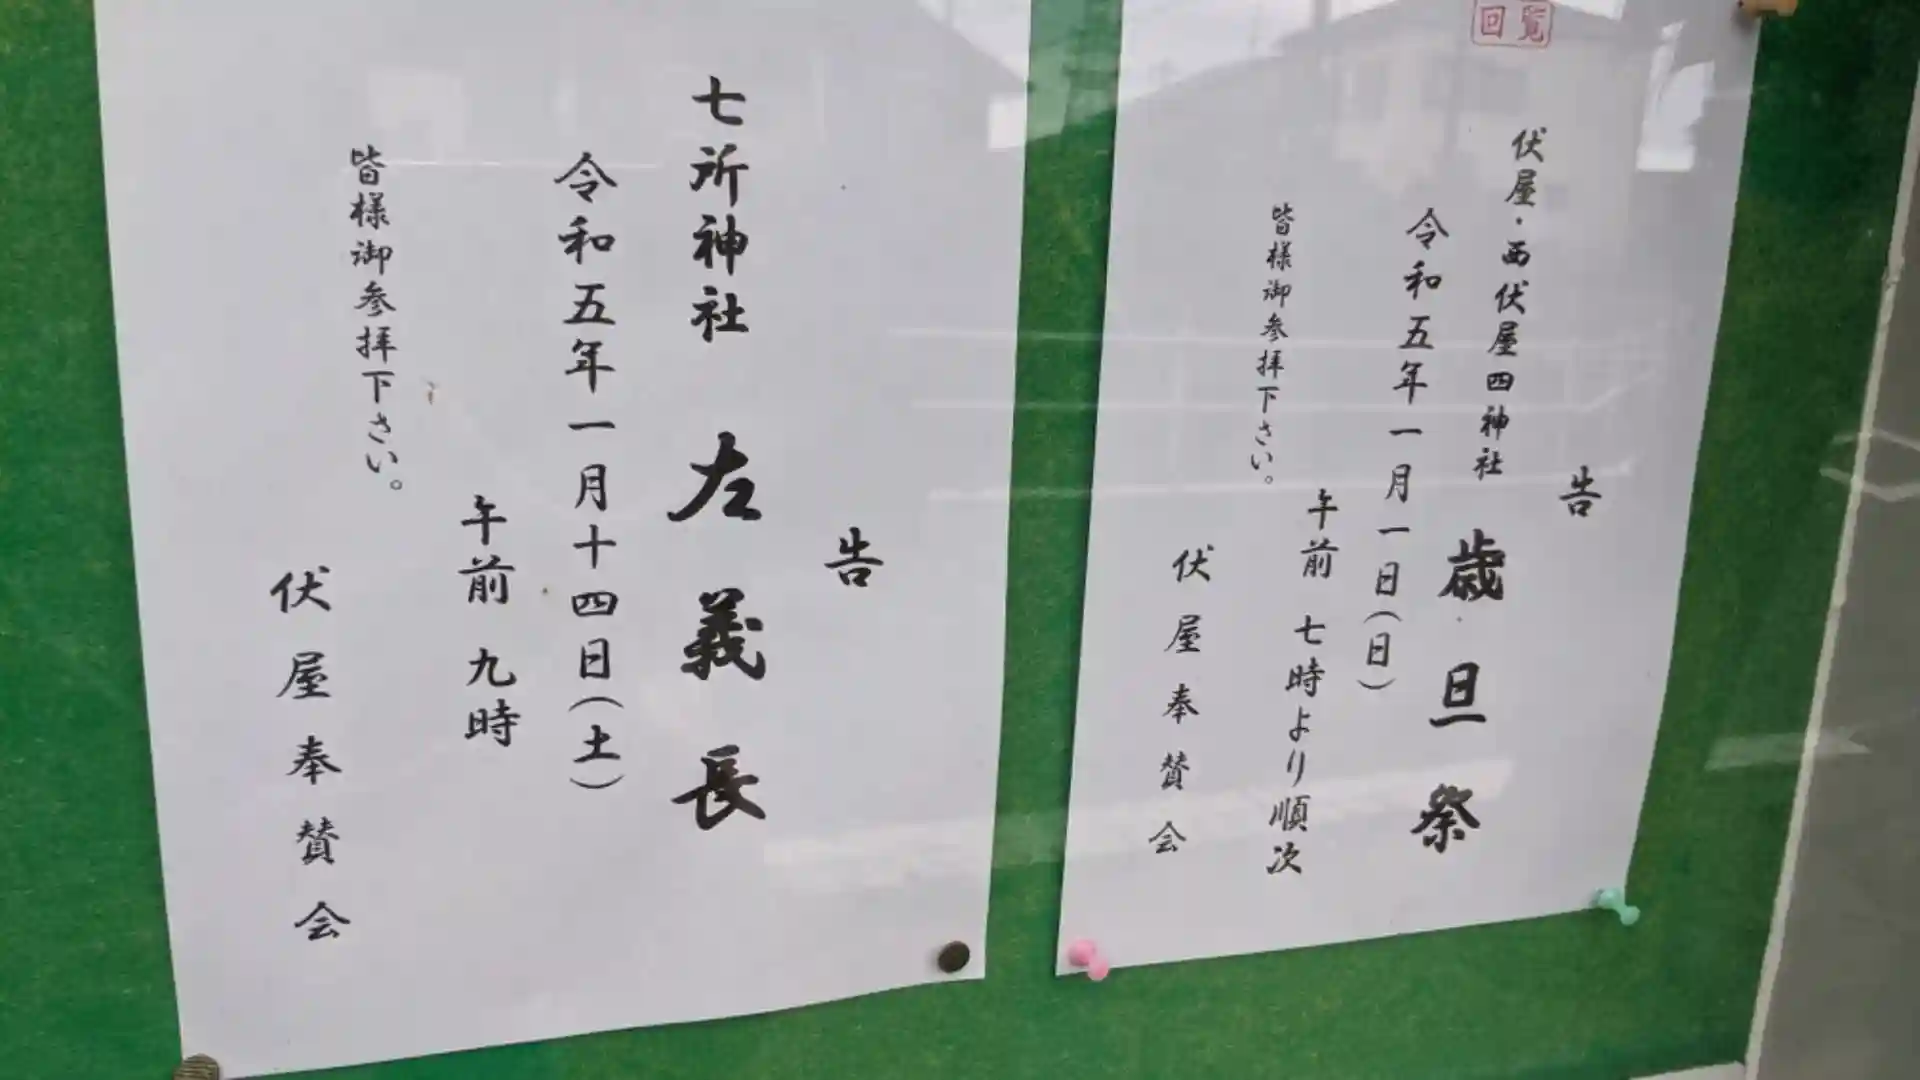 回覧
告
伏屋・西伏屋四神社 歳旦祭
令和五年一月一日(日)
午前 七時より順次
皆様御参拝下さい。
伏屋奉賛会
告
七所神社 左義長
令和五年一月十四日(土)
午前 九時
皆様御参拝下さい。
伏屋奉賛会